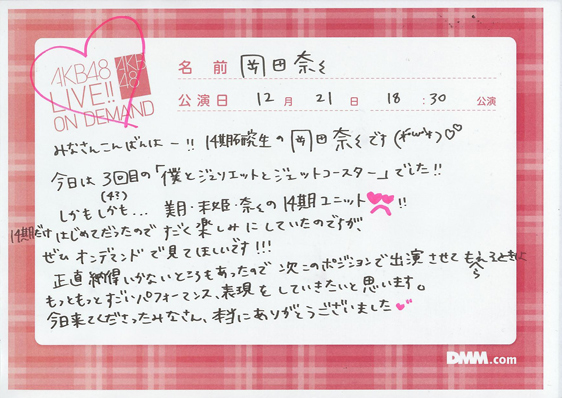 AKB48
LIVE!!
ON DEMAND
AKB
48
名前 岡田奈々
公演日 12月 21日 18:30 公演
みなさんこんばんはー!! 14期研究生の岡田奈々です(*´ω`*)♡♡
今日は3回目の「僕とジュリエットとジェットコースター」でした!!
しかもしかも... 美月・未姫・奈々の14期ユニット !!
14期だけ はじめてだったので すごく楽しみにしていたのですが、
ぜひ オンデマンドで見てほしいです!!!
正直 納得いかないところもあったので 次このポジションで出演させてもらえるときは
もっともっとすごいパフォーマンス、表現をしていきたいと思います。
今日来てくださったみなさん、本当にありがとうございました
DMM.com